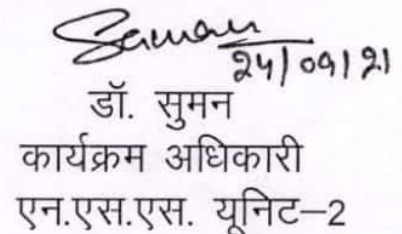 Suman
24/09/21
डॉ. सुमन
कार्यक्रम अधिकारी
एन.एस.एस. यूनिट–2